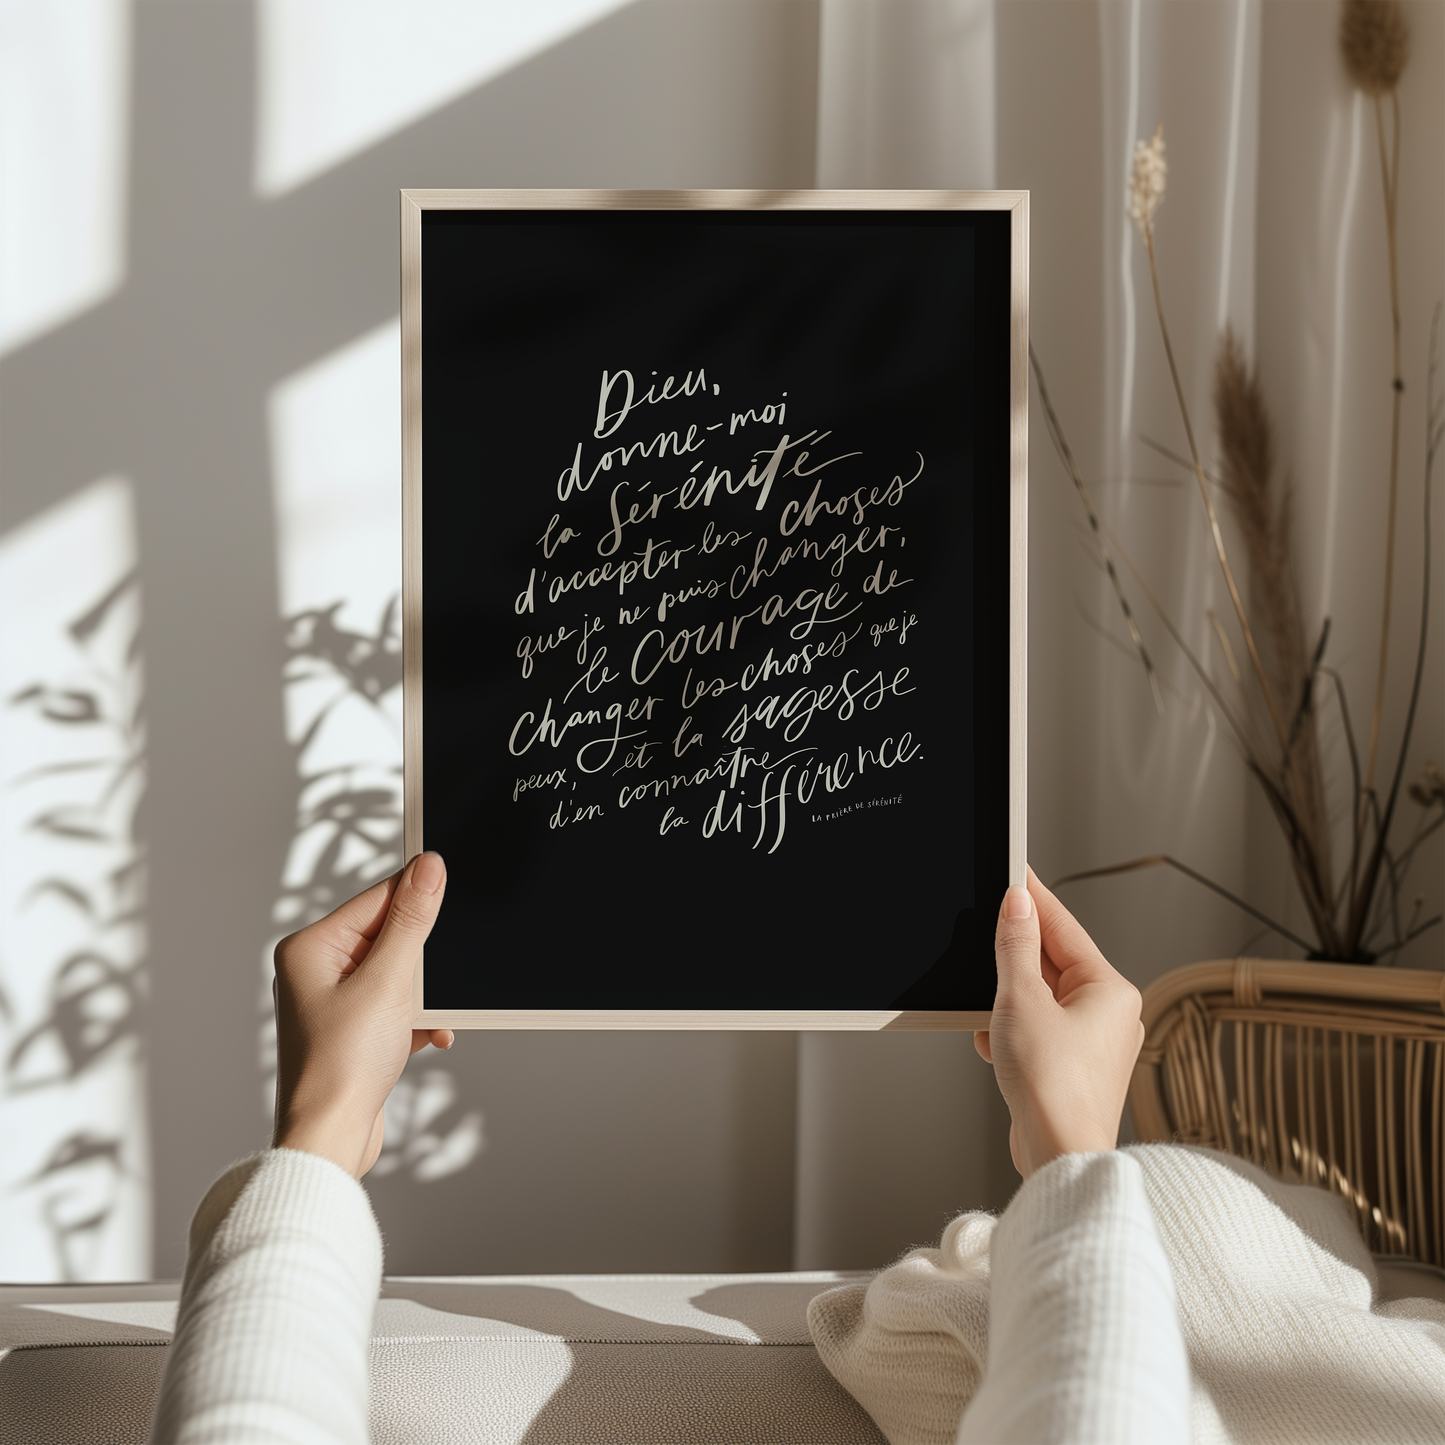 Dieu,
donne-moi
la Sérénité
d'accepter les choses
que je ne puis changer,
le Courage de
Changer les choses que je
peux, et la sagesse
d'en connaître
la différence.
LA PRIÈRE DE SÉRÉNITÉ